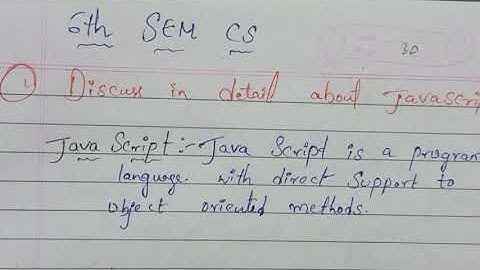 6th SEM CS
30
1 Discuss in detail about Javascrip
Java Script :- Java Script is a program
language. with direct Support to
object oriented methods.